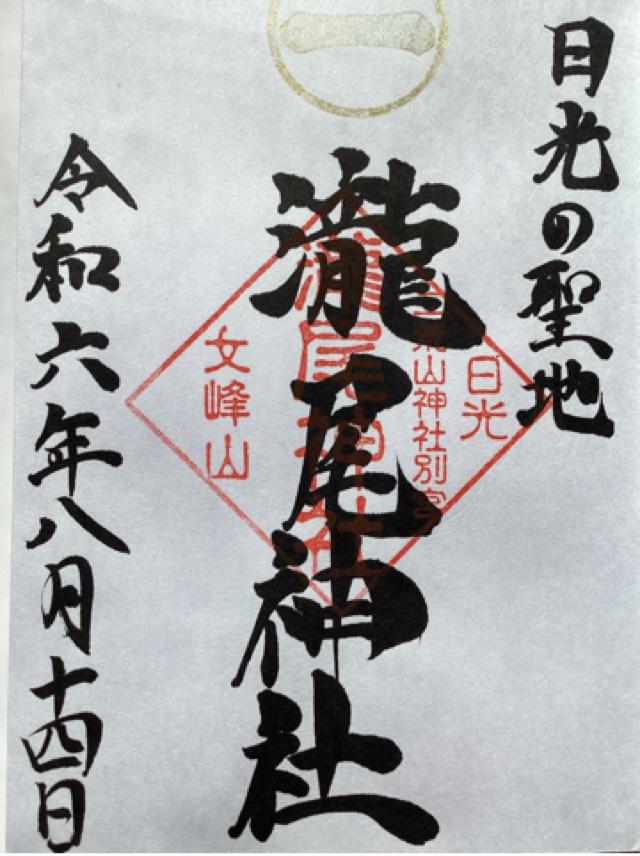 日光の聖地
瀧尾神社
令和六年八月十四日
日光
山神社別宮
瀧尾神社
女峰山